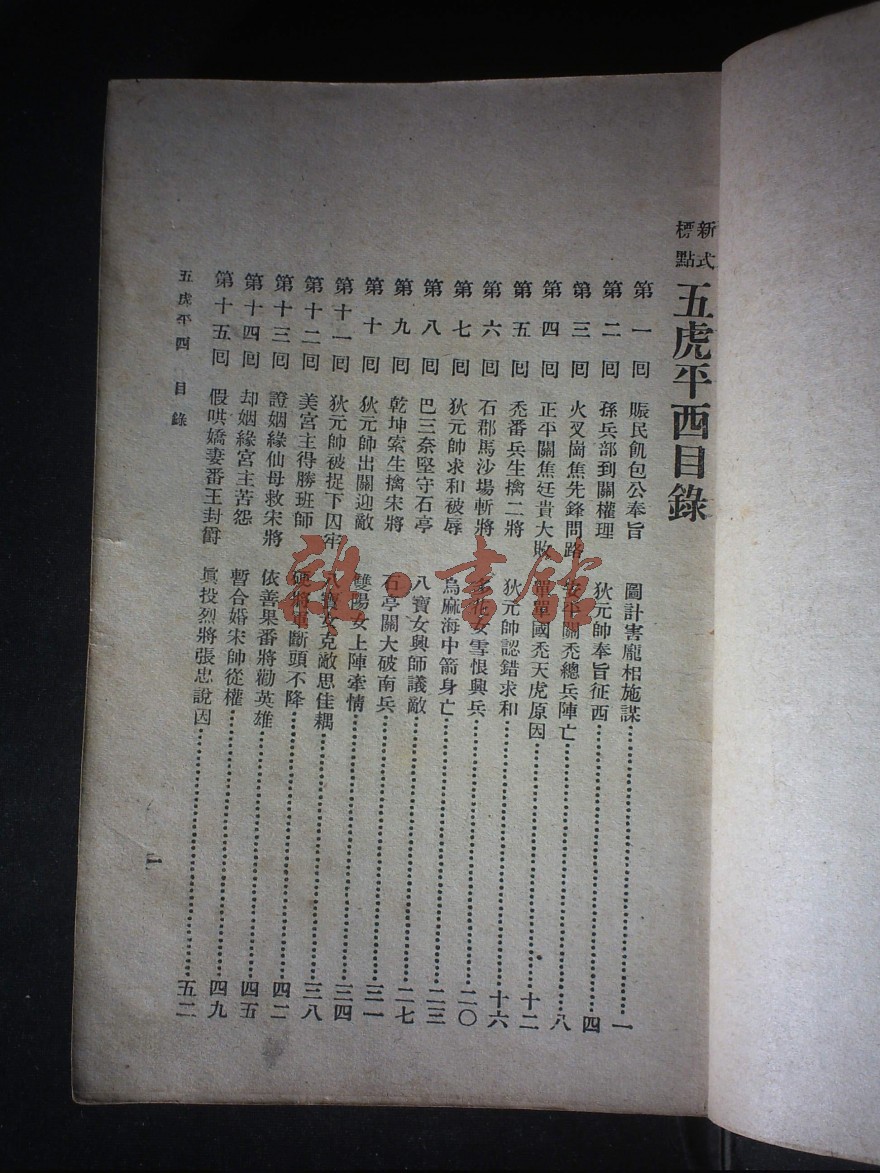 新式標點 五虎平西目錄
第一回 賑民飢包公奉旨 圖計害龐相施謀 一
第二回 孫兵部到關權理 狄元帥奉旨征西 四
第三回 火叉崗焦先鋒問路 安平關禿總兵陣亡 八
第四回 正平關焦廷貴大敗 單單國禿天虎原因 十二
第五回 禿番兵生擒二將 狄元帥認錯求和 十六
第六回 石郡馬沙場斬將 多花女雪恨興兵 二〇
第七回 狄元帥求和被辱 烏麻海中箭身亡 二三
第八回 巴三奈堅守石亭 八寶女興師議敵 二七
第九回 乾坤索生擒宋將 石亭關大破南兵 三一
第十回 狄元帥出關迎敵 雙陽女上陣牽情 三四
第十一回 狄元帥被捉下囚牢 八寶女克敵思佳耦 三八
第十二回 美宮主得勝班師 硬將軍斷頭不降 四二
第十三回 證姻緣仙母救宋將 依善果番將勸英雄 四五
第十四回 却姻緣宮主苦怨 暫合婚宋帥從權 四九
第十五回 假哄嬌妻番王封爵 眞投烈將張忠說因 五二
五虎平西 目錄
一
雜·書館